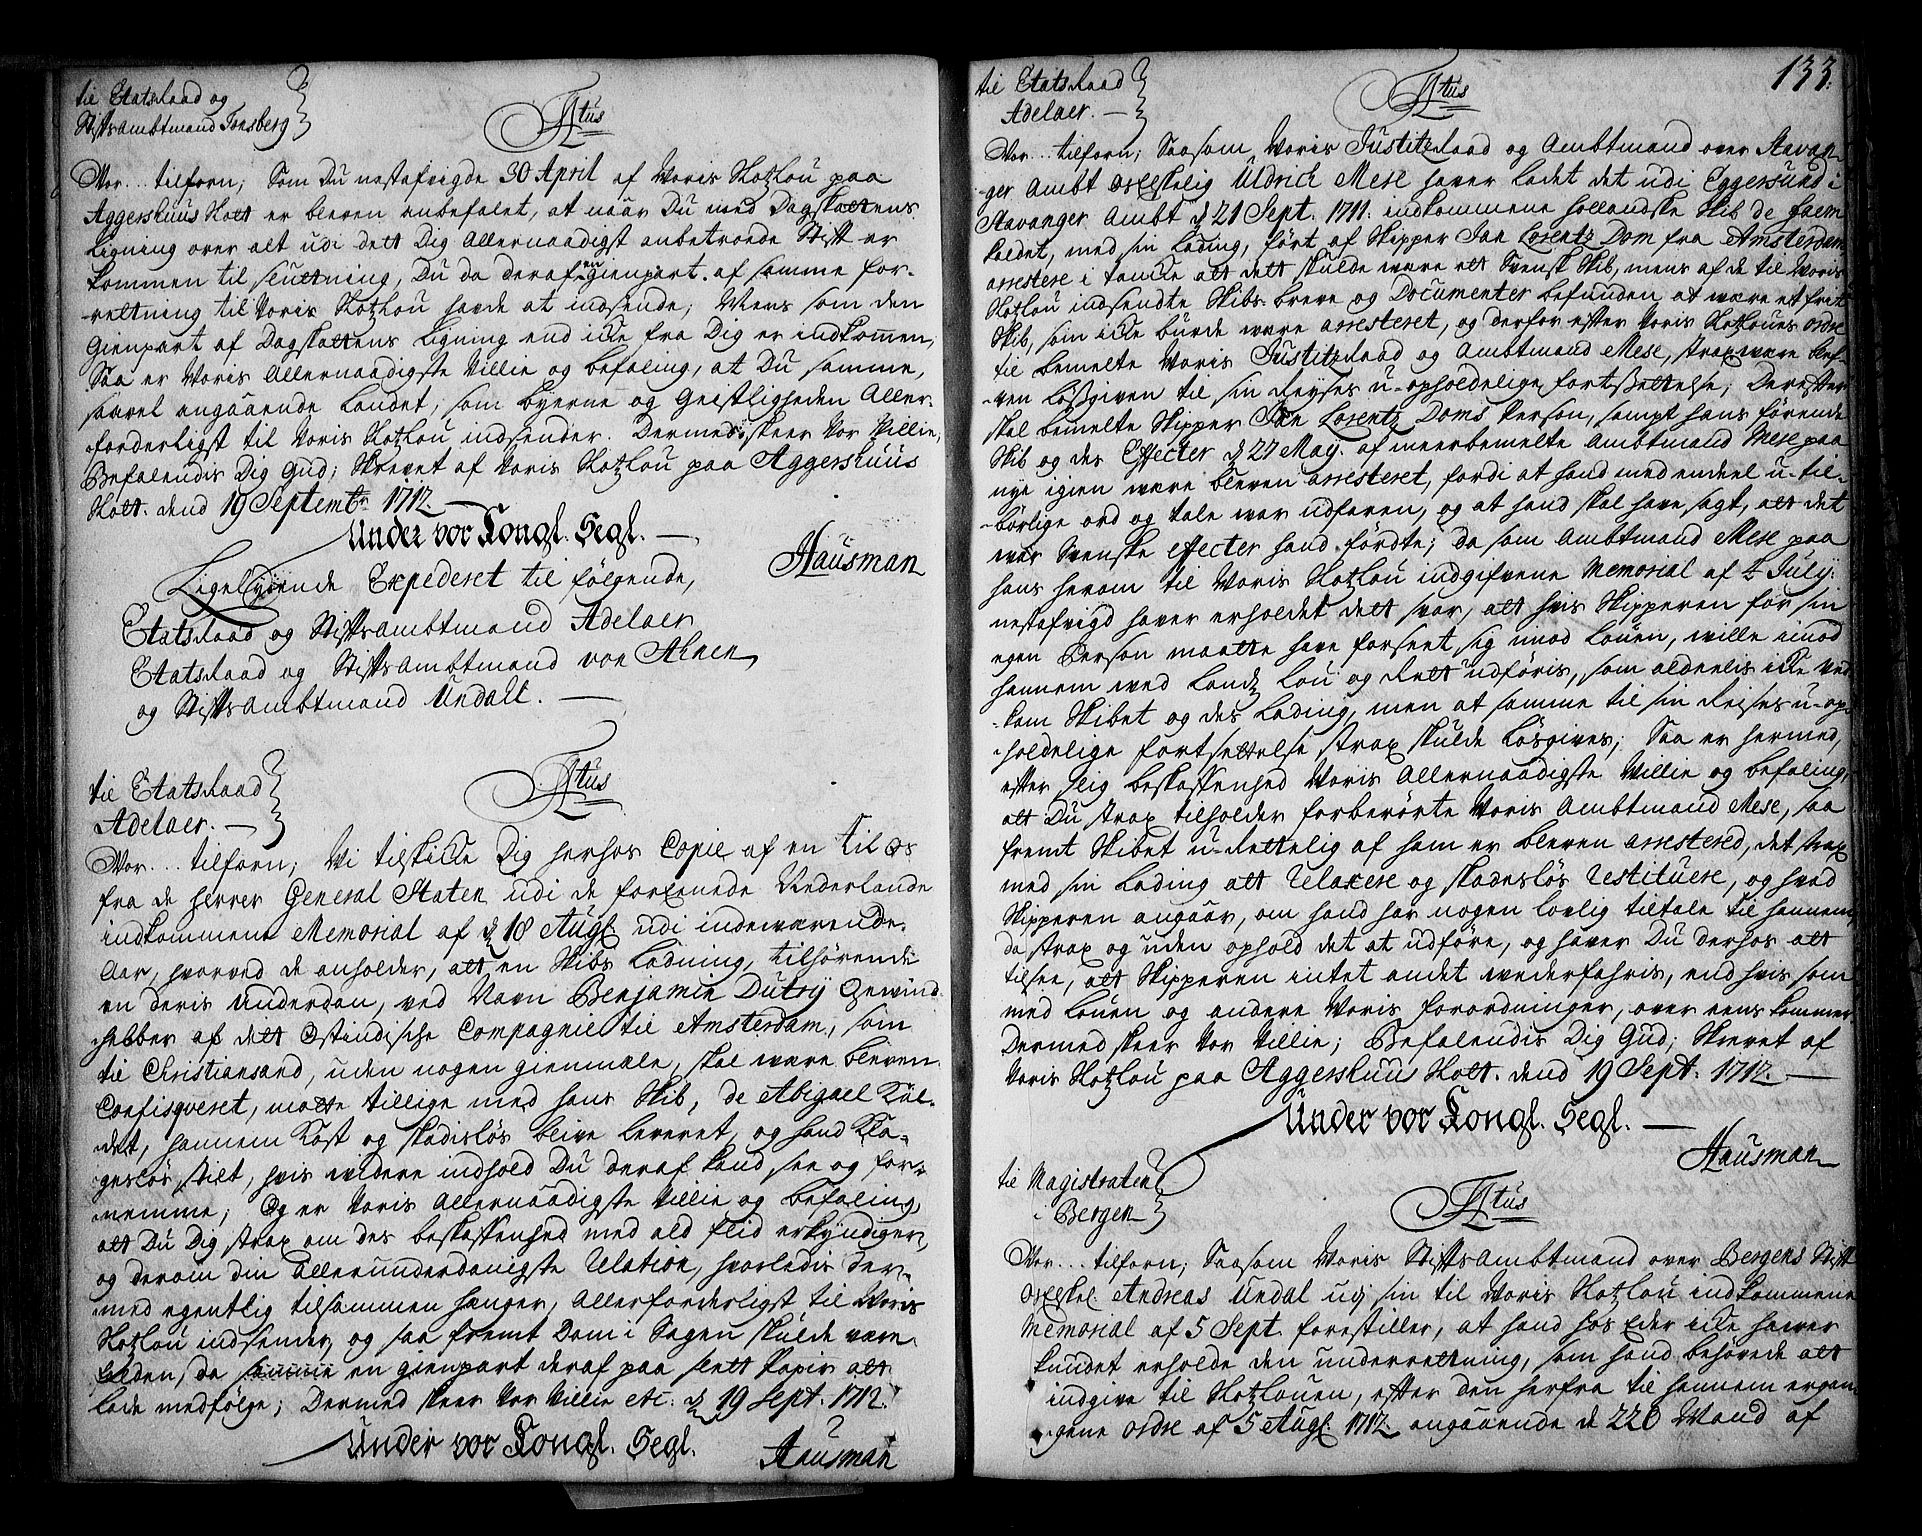 til Etatsraad og
Stiftsambtmand Tonsberg
F4tus
Vor... tilforn; Som Du nestafvigde 30 April af Voris Slotzlou paa
Aggershuus Slott er bleven anbefalet, at naar Du med Dagskattens
Ligning over alt udi dett Dig Allernaadigst anbetroede Stift er
kommen til slutning, Du da deraf en gienpart af samme for-
-rettning til Voris Slotzlou hafde at indsende; Mens som den
Gienpart af Dagskattens Ligning end icke fra Dig er indkommen,
Saa er Voris Allernaadigste Villie og befaling, at Du samme,
saavel angaaende Landet, som byerne og Geistligheden Aller-
forderligst til Voris Slotzlou indsender. Dermed skeer Vor Villie,
Befalendis Dig Gud; Skrevet af Voris Slotzlou paa Aggershuus
Slott. dend 19 Septembr 1712.
Under vor Kongl. Segl.
Hausman
Ligelydende Expederet til følgende,
Etatsraad og Stiftsambtmand Adelaer
Etatsraad og Stiftsambtmand von Ahnen
og Stiftsambtmand Undall.
til Etatsraad
Adelaer.
Vor... tilforn; Vi tilskicke Dig herhos Copie af en til os
fra de herrer General Staten udi de foreenede Nederlande
indkommene Memorial af d 18 Augl. udi indeværende
Aar, hvorved de anholder, att en Skibs Ladning, tilhørende
en deris Underdan, ved Navn Benjamin Dutry Bewind-
hebber af dett Ostindische Compagnie til Amsterdam, som
til Christiansand, uden nogen gienmæle, skal være bleven
Confisqveret, motte tillige med hans Skib, de Abigael kal-
det, hannem kost og skadisløs blive leveret, og hand kla-
gesløs stilt, hvis videre indhold Du deraf kand see og for-
nemme; Og er Voris Allernaadigste Villie og befaling,
att Du Dig strax om des beskaffenhed med ald flid erkyndiger,
og derom din allerunderdanigste Relation, hvorledis der-
med egentlig tilsammen hanger, Allerforderligst til Voris
Slotzlou indsender, og saa fremt Dom i Sagen skulde være
leden, da en gienpart deraf paa slett Papir att
lade medfølge; Dermed skeer Vor Villie etc. d 19 Sept. 1712.
Under vor Kongl. Segl.
Hausman
133.
til Etatsraad
Adelaer.
Vor... tilforn; Saasom Voris Justitzraad og Ambtmand over Stavan-
-ger Ambt os elskelig Uldrich Mese haver ladet det udi Eggersund i
Stavanger Ambt d 21 Sept. 1711. indkommene hollandske Skib de faem
kaldet, med sin Lading, ført af Skipper Jan Lorentz Dom fra Amsterdam
arrestere i tancke att dett skulde være ett Svensk Skib, mens af de til Voris
Slotzlou indsendte Skibs-breve og Documenter befunden at være ett frit
Skib, som icke burde være arresteret, og derfor efter Voris Slotzloues ordre
til bemelte Voris Justitzraad og Ambtmand Mese, strax være blef-
ven løssgiven til sin Reyses u-opholdelige fortsettelse; Derefter
skal bemelte Skipper Jan Lorentz Doms Person, sampt hans førende
Skib og des Effecter d 27 May. af meerbemelte Ambtmand Mese paa
nye igien være bleven arresteret, fordi at hand med endeel u-til-
-børlige ord og tale var udfaren, og at hand skal have sagt, att det
var Svenske effecter hand førdte; da som Ambtmand Mese paa
hans herom til Voris Slotzlou indgifvene Memorial af 4 July
nestafvigd haver erholdet dett svar, att hvis Skipperen for sin
egen Person maatte have forseet sig imod Louen, ville imod
hannem ved Landz Lou og Rett udføris, som alderlis icke ved
kom Skibet og des Lading, men at samme til sin Reises u-op-
holdelige fortsettelse strax skulde Løsgives; Saa er hermed,
efter slig beskaffenhed Voris Allernaadigste Villie og befaling,
att Du strax tilholder forberørte Voris Ambtmand Mese, saa
fremt Skibet u-Rettelig af ham er bleven arrestered, det strax
med sin Lading att Relaxere og skadesløs Restituere, og hvad
Skipperen angaar, om hand har nogen lovlig tiltale til hannem,
da strax og uden ophold det at udføre, og haver Du derhos att
tilsee, att Skipperen intet andet vederfahris, end hvis som
med Louen og andere Voris forordninger, over eens kommer.
Dermed skeer Vor Villie; Befalendis Dig Gud; Skrevet af
Voris Slotzlou paa Aggershuus Slott. dend 19 Sept. 1712.
Under vor Kongl. Segl.
Hausman
til Magistraten
i Bergen
Vor... tilforn; Saasom Voris Stiftsambtmand over Bergens Stift
os elskel. Andreas Undal udj sin til Voris Slotzlou indkommene
Memorial af 5 Sept. forestiller, at hand hos Eder icke haver
kundet erholde den underrettning, som hand behøvede att
indgive til Slotzlouen, efter den herfra til hannem ergan-
gene ordre af 5 Augl. 1712 angaaende de 226 Mand af